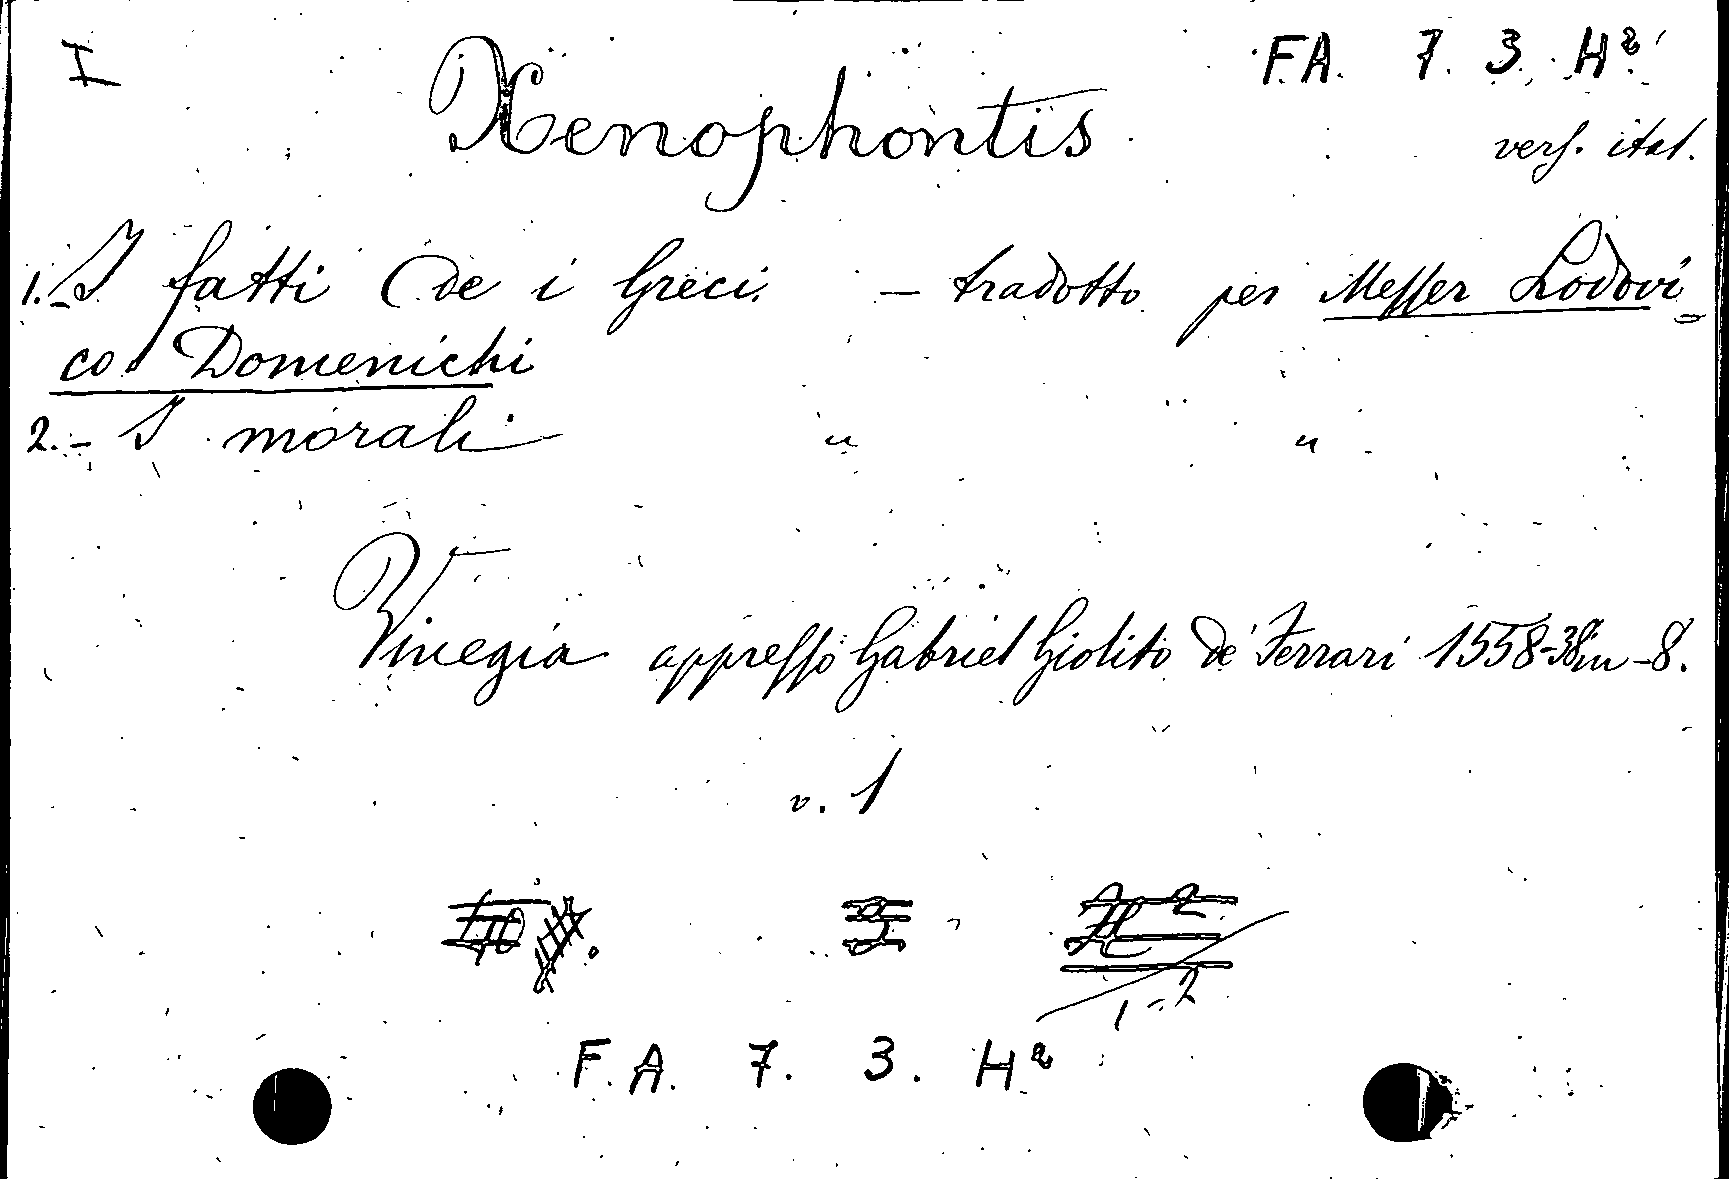 I
F.A. 7. 3. H²
Xenophontis
vers. ital.
1.- I fatti de i Greci. - tradotto per Messer Lodovi=
co Domenichi
2.- I morali " "
Vinegia appresso Gabriel Giolito de' Ferrari 1558-38 in -8.
v. 1
3 H 2
1-2
F. A. 7. 3. H²